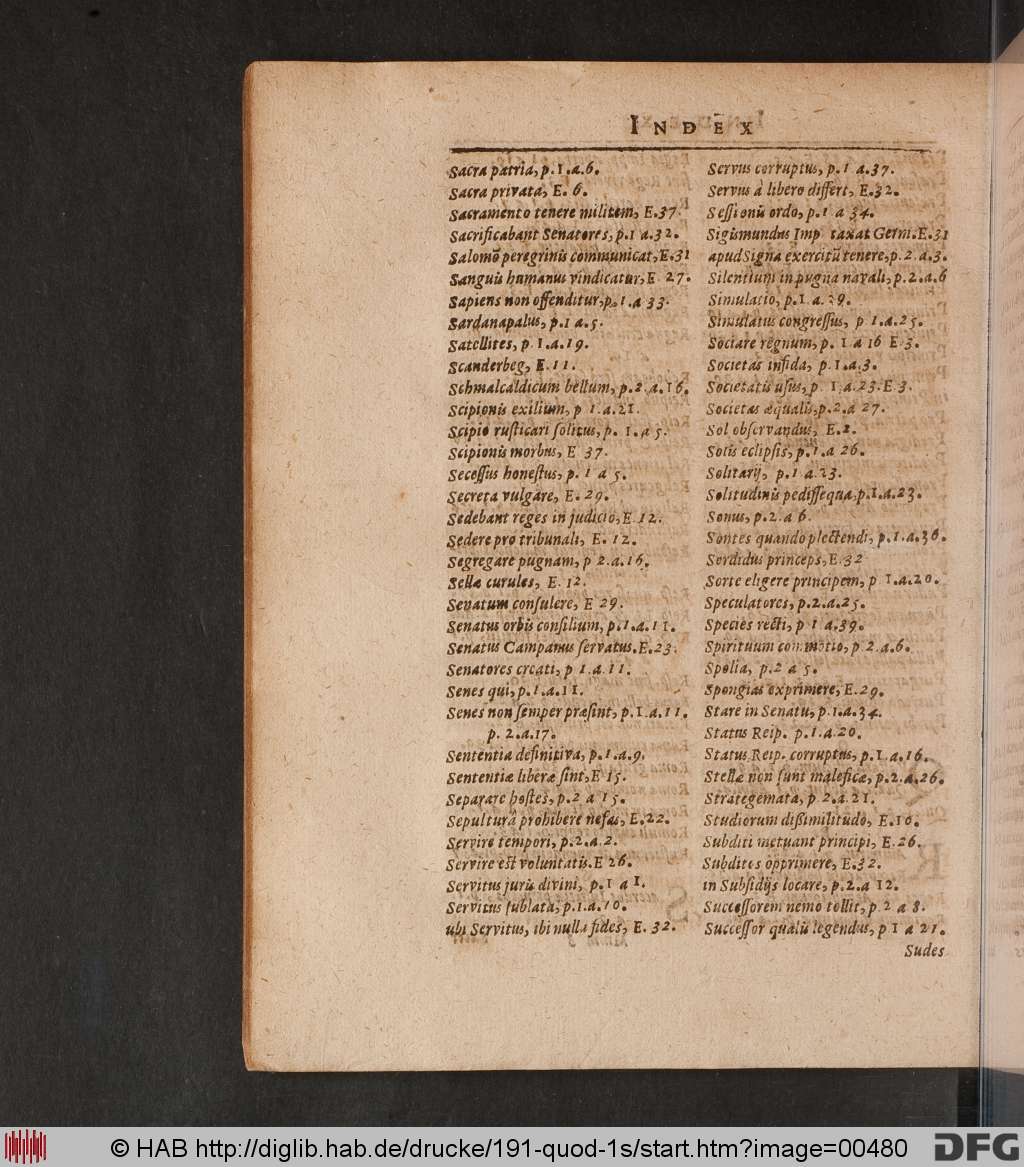 INDEX
Sacra patria, p.1.a.6.
Sacra privata, E. 6.
Sacramento tenere militem, E.37
Sacrificabant Senatores, p.1 a.32.
Salomō peregrinis communicat, E.31
Sanguis humanus vindicatur, E. 27.
Sapiens non offenditur, p. 1.a 33.
Sardanapalus, p.1 a.5.
Satellites, p. 1.a.19.
Scanderbeg, E.11.
Schmalcaldicum bellum, p.2.a.16.
Scipionis exilium, p 1.a.21.
Scipio rusticari solitus, p. 1.a 5.
Scipionis morbus, E 37.
Secessus honestus, p. 1 a 5.
Secreta vulgare, E. 29.
Sedebant reges in judicio, E.12.
Sedere pro tribunali, E. 12.
Segregare pugnam, p 2.a.16.
Sellæ curules, E. 12.
Senatum consulere, E 29.
Senatus orbis consilium, p.1.a.11.
Senatus Campanus servatus. E.23.
Senatores creati, p 1.a.11.
Senes qui, p.1.a.11.
Senes non semper præsint, p.1.a.11.
p. 2.a.17.
Sententia definitiva, p.1.a.9.
Sententiæ liberæ sint, E 15.
Separare hostes, p.2 a 15.
Sepulturâ prohibere nefas, E.22.
Servire tempori, p.2.a.2.
Servire est voluntatis. E 26.
Servitus juris divini, p.1 a 1.
Servitus sublata, p.1.a.10.
ubi Servitus, ibi nulla fides, E. 32.
Servus corruptus, p.1 a.37.
Servus à libero differt, E.32.
Sessionū ordo, p.1 a 34.
Sigismundus Imp taxat Germ. E.31
apud Signa exercitū tenere, p.2.a.3.
Silentium in pugna navali, p.2.a.6
Simulatio, p.1 a.29.
Simulatus congressus, p 1.a.25.
Sociare regnum, p. 1 a 16 E 3.
Societas infida, p.1.a.3.
Societatis usus, p. 1.a.23. E 3.
Societas æqualis, p.2.a 27.
Sol observandus, E.2.
Solis eclipsis, p.1.a 26.
Solitarij, p.1 a.23.
Solitudinis pedissequa, p.1.a.23.
Sonus, p.2.a 6.
Sontes quando plectendi, p.1.a.36.
Sordidus princeps, E.32
Sorte eligere principem, p 1.a.20.
Speculatores, p.2.a.25.
Species recti, p 1 a.39.
Spirituum commotio, p 2.a.6.
Spolia, p.2 a 5.
Spongias exprimere, E.29.
Stare in Senatu, p.1.a.34.
Status Reip. p.1.a.20.
Status Reip. corruptus, p.1.a.16.
Stellæ non sunt maleficæ, p.2.a.26.
Strategemata, p 2.a.21.
Studiorum dissimilitudo, E.10.
Subditi metuant principi, E.26.
Subditos opprimere, E.32.
in Subsidijs locare, p.2.a 12.
Successorem nemo tollit, p.2 a 8.
Successor qualis legendus, p 1 a 21.
Sudes
© HAB http://diglib.hab.de/drucke/191-quod-1s/start.htm?image=00480
DFG